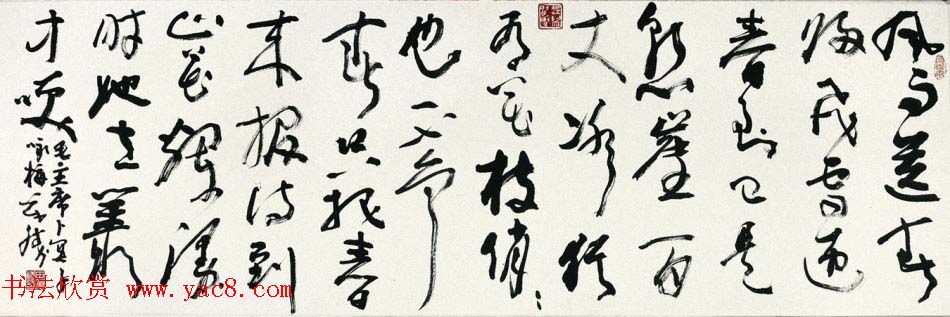 风雨送春
归飞雪迎
春到已是
悬崖百
丈冰犹
有花枝俏〻
也不争
春只把春
来报待到
山花烂漫
时她在丛
中笑
毛主席卜算子
咏梅
书法欣赏 www.yac8.com